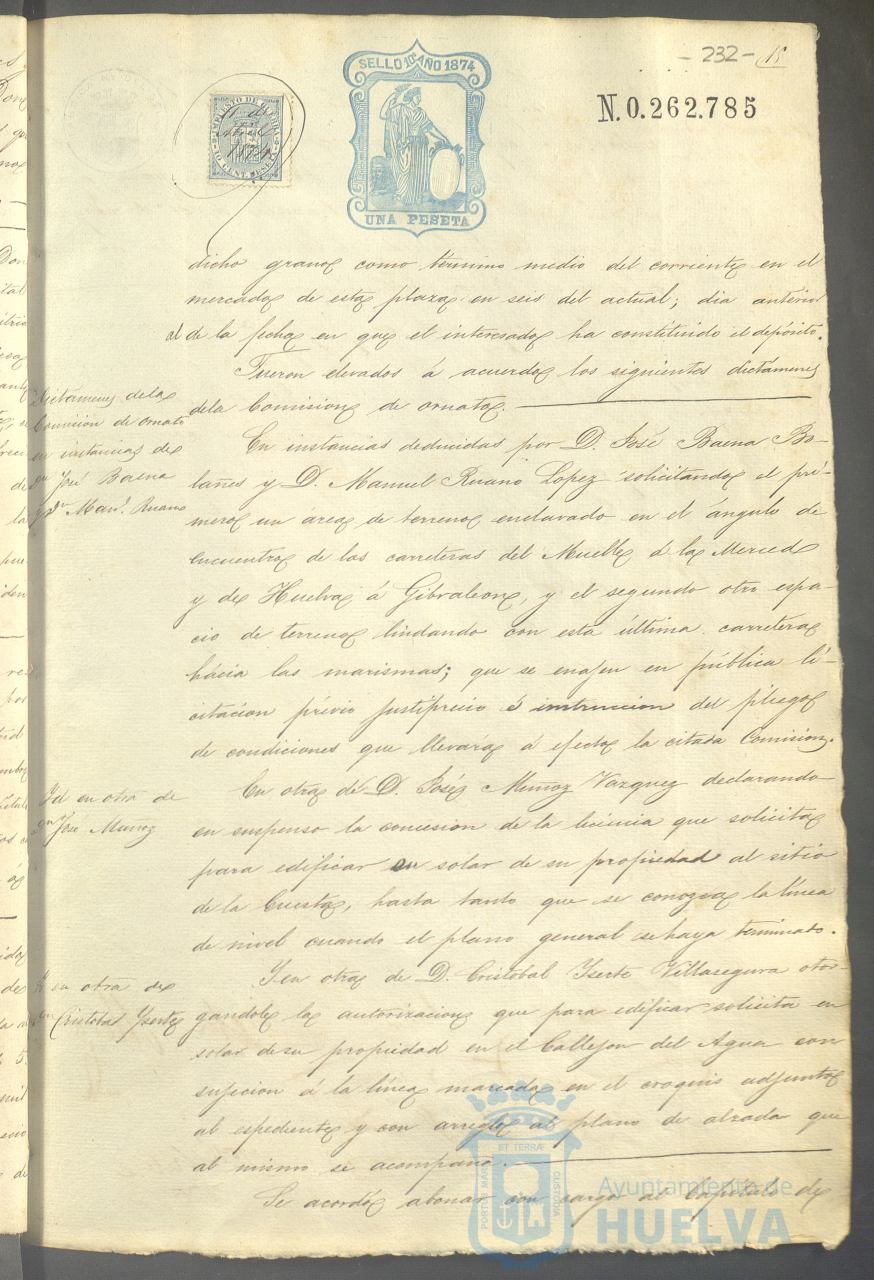 - 232 -
15
SELLO 10º AÑO 1874
UNA PESETA
N. 0.262.785
IMPUESTO DE GUERRA
10 CENT. PESETA
11 de
Abril
1874
dicho grano como término medio del corriente en el
mercado de esta plaza en seis del actual; dia anterior
al de la fecha en que el interesado ha constituido el depósito.
Fueron elevados á acuerdo los siguientes dictámenes
dela Comision de ornato.
Dictámenes dela
Comision de ornato
en instancias de
Dn José Baena
y Dn Manl. Ruano
En instancias deducidas por D. José Baena Bo-
lañes y D. Manuel Ruano Lopez solicitando el pri-
mero un área de terreno enclavado en el ángulo de
encuentro de las carreteras del Muelle á la Merced
y de Huelva á Gibraleon, y el segundo otro espa-
cio de terreno lindando con esta última carretera
hácia las marismas; que se enajen en pública li-
citacion prévio justiprecio é instruccion del pliego
de condiciones que llevará á efecto la citada Comision.
Id en otra de
Dn José Muñoz
En otra de D. José Muñoz Vazquez declarando
en suspenso la concesion de la licencia que solicita
para edificar su solar de su propiedad al sitio
de la Cuesta, hasta tanto que se conozca la línea
de nivel cuando el plano general se haya terminado.
Id en otra de
Dn Cristobal Yserte
Y en otra de D. Cristobal Yserte Villasegura otor-
gandole la autorizacion que para edificar solicita en
solar de su propiedad en el Callejon del Agua con
sujecion á la línea marcada en el croquis adjunto
al espediente y con arreglo al plano de alzada que
al mismo se acompaña.
Se acordó abonar con cargo al Capítulo de
PORTUS MARIS
ET TERRÆ
CUSTODIA
Ayuntamiento de
HUELVA